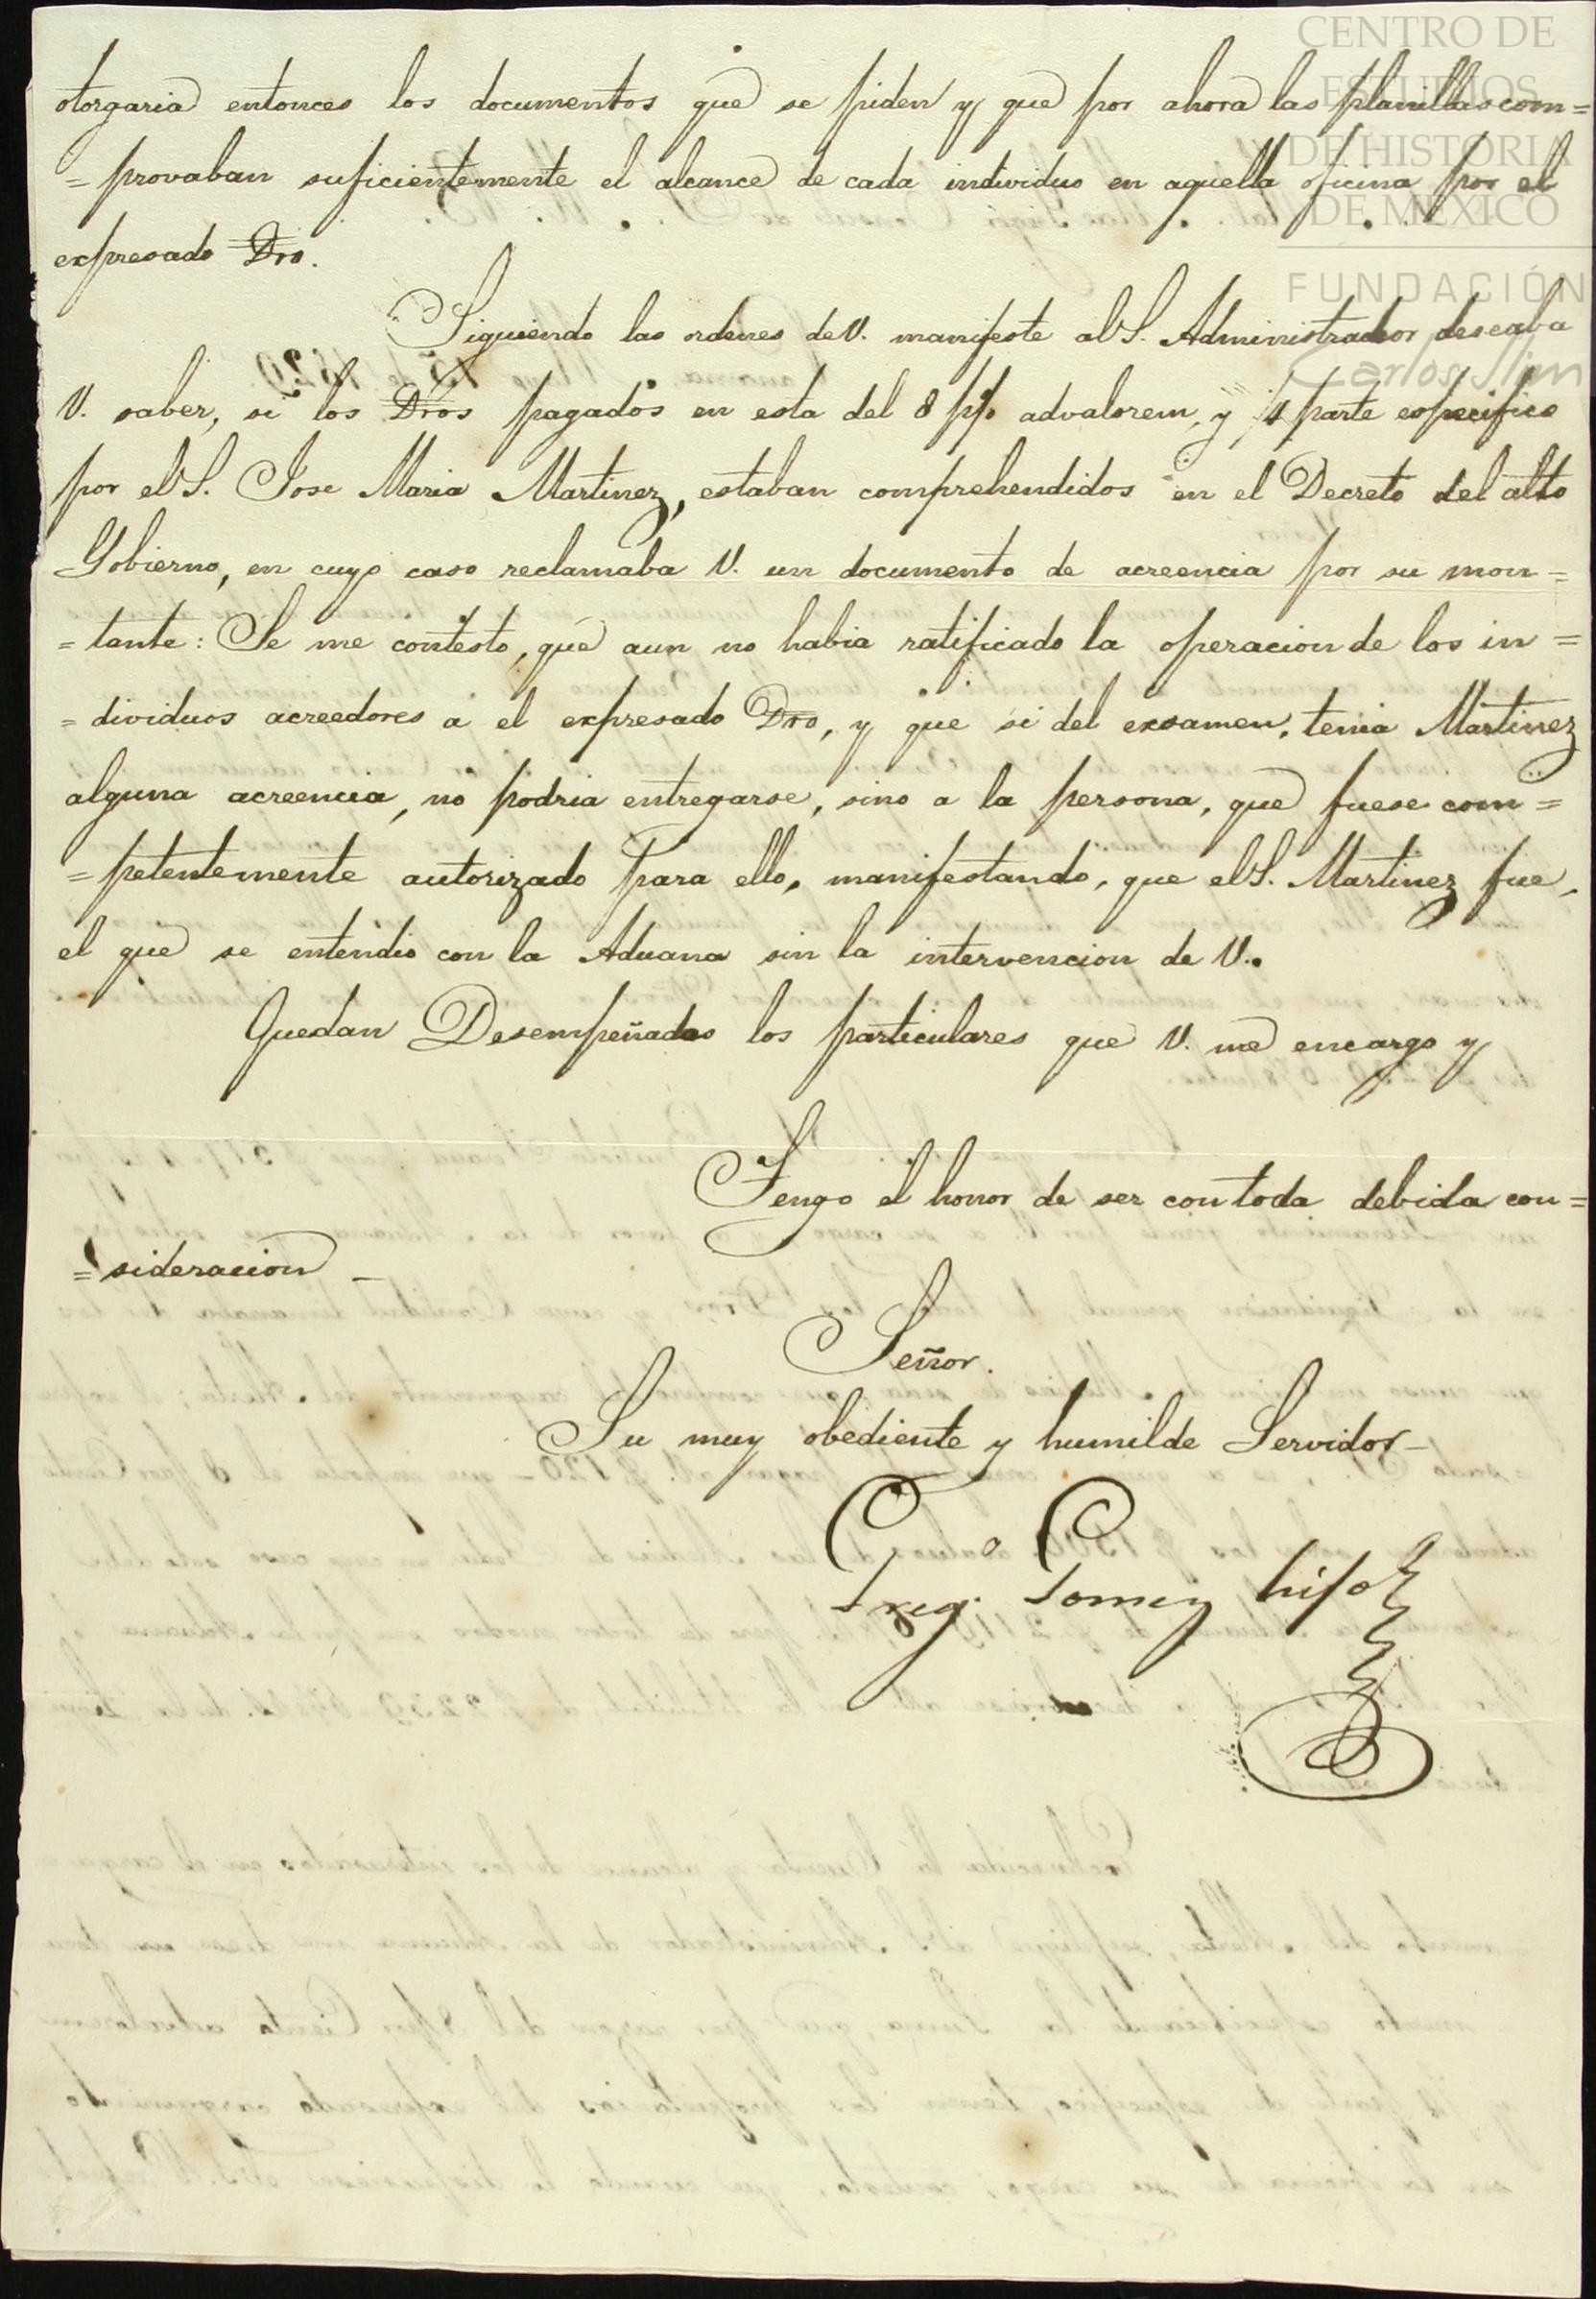 CENTRO DE
ESTUDIOS
DE HISTORIA
DE MÉXICO
FUNDACIÓN
Carlos Slim
otorgaria entonces los documentos que se piden y que por ahora las planillas com=
=provaban suficientemente el alcance de cada individuo en aquella oficina por el
expresado Dro.
Siguiendo las ordenes de V. manifeste al S. Administrador deseaba
V. saber, si los Dros pagados en esta del 8 p% advalorem, y parte especifico
por el S. Jose Maria Martinez, estaban comprehendidos en el Decreto del alto
Gobierno, en cuyo caso reclamaba V. un documento de acreencia por su mon=
=tante: Se me contesto, que aun no habia ratificado la operacion de los in=
=dividuos acreedores a el expresado Dro, y que si del exsamen, tenia Martinez
alguna acreencia, no podria entregarse, sino a la persona, que fuese com=
=petentemente autorizado para ello, manifestando, que el S. Martinez fue,
el que se entendio con la Aduana sin la intervencion de V.
Quedan Desempeñados los particulares que V. me encargo y
Tengo el honor de ser con toda debida con=
=sideracion _
Señor.
Su muy obediente y humilde Servidor_
hijo